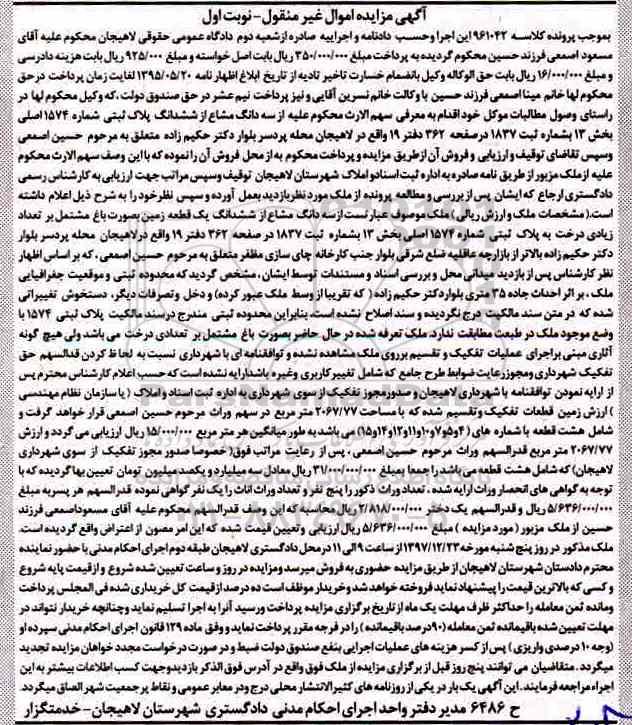 آگهی مزایده اموال غیر منقول-نوبت اول
بموجب پرونده کلاسه ۹۶۱۰۴۲ این اجرا وحسب دادنامه و اجراییه صادره ازشعبه دوم دادگاه عمومی حقوقی لاهیجان محکوم علیه آقای
مسعود اصمعی فرزند حسین محکوم گردیده به پرداخت مبلغ ۳۵۰/۰۰۰/۰۰۰ ریال بابت اصل خواسته و مبلغ ۹۲۵/۰۰۰ ریال بابت هزینه دادرسی
و مبلغ ۱۶/۰۰۰/۰۰۰ ریال بابت حق الوکاله وکیل بانضمام خسارت تاخیر تادیه از تاریخ ابلاغ اظهارنامه ۱۳۹۵/۰۵/۲۰ لغایت زمان پرداخت درحق
محکوم لها خانم مینا اصمعی فرزند حسین با وکالت خانم نسرین آقایی و نیز پرداخت نیم عشر در حق صندوق دولت ،که وکیل محکوم لها در
راستای وصول مطالبات موکل خود اقدام به معرفی سهم الارث محکوم علیه از سه دانگ مشاع از ششدانگ پلاک ثبتی شماره ۱۵۷۴ اصلی
بخش ۱۳ بشماره ثبت ۱۸۳۷ درصفحه ۳۶۲ دفتر ۱۹ واقع در لاهیجان محله پردسر بلوار دکتر حکیم زاده متعلق به مرحوم حسین اصمعی
وسپس تقاضای توقیف و ارزیابی و فروش آن ازطریق مزایده و پرداخت محکوم به از محل فروش آن را نموده که با این وصف سهم الارث محکوم
علیه از ملک مزبور از طریق نامه صادره به اداره ثبت اسناد و املاک شهرستان لاهیجان توقیف وسپس مراتب جهت ارزیابی به کارشناس رسمی
دادگستری ارجاع که ایشان پس از بررسی و مطالعه پرونده از ملک مورد نظر بازدید بعمل آورده و سپس نظر خود را به شرح ذیل اعلام داشته
است.( مشخصات ملک و ارزش ریالی ) ملک موصوف عبارتست از سه دانگ مشاع از ششدانگ یک قطعه زمین بصورت باغ مشتمل بر تعداد
زیادی درخت به پلاک ثبتی شماره ۱۵۷۴ اصلی بخش ۱۳ بشماره ثبت ۱۸۳۷ در صفحه ۳۶۲ دفتر ۱۹ واقع درلاهیجان محله پردسر بلوار
دکتر حکیم زاده بالاتر از بازارچه عاقلیه ضلع شرقی بلوار جنب کارخانه چای سازی مظفر متعلق به مرحوم حسین اصمعی ، که بر اساس اظهار
نظر کارشناس پس از بازدید میدانی محل و بررسی اسناد و مستندات توسط ایشان ، مشخص گردید که محدوده ثبتی و موقعیت جغرافیایی
ملک ، بر اثر احداث جاده ۳۵ متری بلوار دکتر حکیم زاده ( که تقریبا از وسط ملک عبور کرده) و دخل وتصرفات دیگر، دستخوش تغییراتی
شده که در متن سند مالکیت درج نگردیده و سند اصلاح نشده است. بنابراین محدوده ثبتی مندرج درسند مالکیت پلاک ثبتی ۱۵۷۴ با
وضع موجود ملک در طبیعت مطابقت ندارد. ملک تعرفه شده در حال حاضر بصورت باغ مشتمل بر تعدادی درخت می باشد ولی هیچ گونه
آثاری مبنی براجرای عملیات تفکیک و تقسیم برروی ملک مشاهده نشده و توافقنامه ای با شهرداری نسبت به لحاظ کردن قدالسهم حق
تفکیک شهرداری ومجوز رعایت ضوابط طرح جامع که شامل تغییر کاربری وغیره باشد ارایه نشده است که حسب اعلام کارشناس محترم پس
از ارایه نمودن توافقنامه با شهرداری لاهیجان و صدور مجوز تفکیک از سوی شهرداری به اداره ثبت اسناد و املاک ( یا سازمان نظام مهندسی
) ارزش زمین قطعات تفکیک و تقسیم شده که با مساحت ۲۰۶۷/۷۷ متر مربع در سهم وراث مرحوم حسین اصمعی قرار خواهد گرفت و
شامل هشت قطعه با شماره های (۴و۵و۷و۱۰و۱۱و۱۲و۱۴و۱۵) می باشد به طور میانگین هر متر مربع ۱۵/۰۰۰/۰۰۰ ریال ارزیابی می گردد و ارزش
۲۰۶۷/۷۷ متر مربع قدرالسهم وراث مرحوم حسین اصمعی ، پس از رعایت مراتب فوق( خصوصا صدور مجوز تفکیک از سوی شهرداری
لاهیجان) که شامل هشت قطعه می باشد را جمعا بمبلغ ۳۱/۰۰۰/۰۰۰/۰۰۰ ریال معادل سه میلیارد و یکصد میلیون تومان تعیین بها گردیده که با
توجه به گواهی های انحصار وراث ارایه شده ، تعداد وراث ذکور را پنج نفر و تعداد وراث اناث را یک نفر گواهی نموده قدرالسهم هر پسر به مبلغ
۵/۶۳۶/۰۰۰/۰۰۰ ریال و قدرالسهم یک دختر ۲/۸۱۸/۰۰۰/۰۰۰ ریال محاسبه که این وصف قدرالسهم محکوم علیه آقای مسعود اصمعی فرزند
حسین از ملک مزبور (مورد مزایده ) مبلغ ۵/۶۳۶/۰۰۰/۰۰۰ ریال ارزیابی و تعیین قیمت شده که این امر مصون از اعتراض واقع گردیده است.
ملک مذکور در روز پنج شنبه مورخه ۱۳۹۷/۱۲/۲۳ از ساعت ۹ الی ۱۱ درمحل دادگستری لاهیجان طبقه دوم اجرای احکام مدنی با حضور نماینده
محترم دادستان شهرستان لاهیجان از طریق مزایده حضوری به فروش میرسد ومزایده در روز و ساعت تعیین شده شروع و از قیمت پایه شروع
و کسی که بالاترین قیمت را پیشنهاد نماید فروخته خواهد شد و خریدار موظف است ده درصد از قیمت کل خریداری شده فی المجلس پرداخت
ومانده ثمن معامله را حداکثر ظرف مهلت یک ماه از تاریخ برگزاری مزایده پرداخت ورسید آنرا به اجرا تسلیم نماید وچنانچه خریدار نتواند در
مهلت تعیین شده باقیمانده ثمن معامله (۹۰درصد باقیمانده ) را در فرجه مقرر پرداخت نماید و وفق ماده ۱۲۹ قانون اجرای احکام مدنی سپرده او
(وجه ۱۰ درصدی واریزی ) پس از کسر هزینه های عملیات اجرایی بنفع صندوق دولت ضبط و در صورت درخواست مجدد خواهان مزایده تجدید
میگردد . متقاضیان می توانند پنج روز قبل از برگزاری مزایده از ملک فوق واقع در آدرس فوق الذکر بازدید وجهت کسب اطلاعات بیشتر به این
اجراء مراجعه فرمایند. این آگهی یک بار در یکی از روزنامه های کثیرالانتشار محلی درج ودر معابر عمومی و نقاط پرجمعیت شهر الصاق میگردد.
ح ۶۴۸۶ مدیر دفتر واحد اجرای احکام مدنی دادگستری شهرستان لاهیجان-خدمتگزار